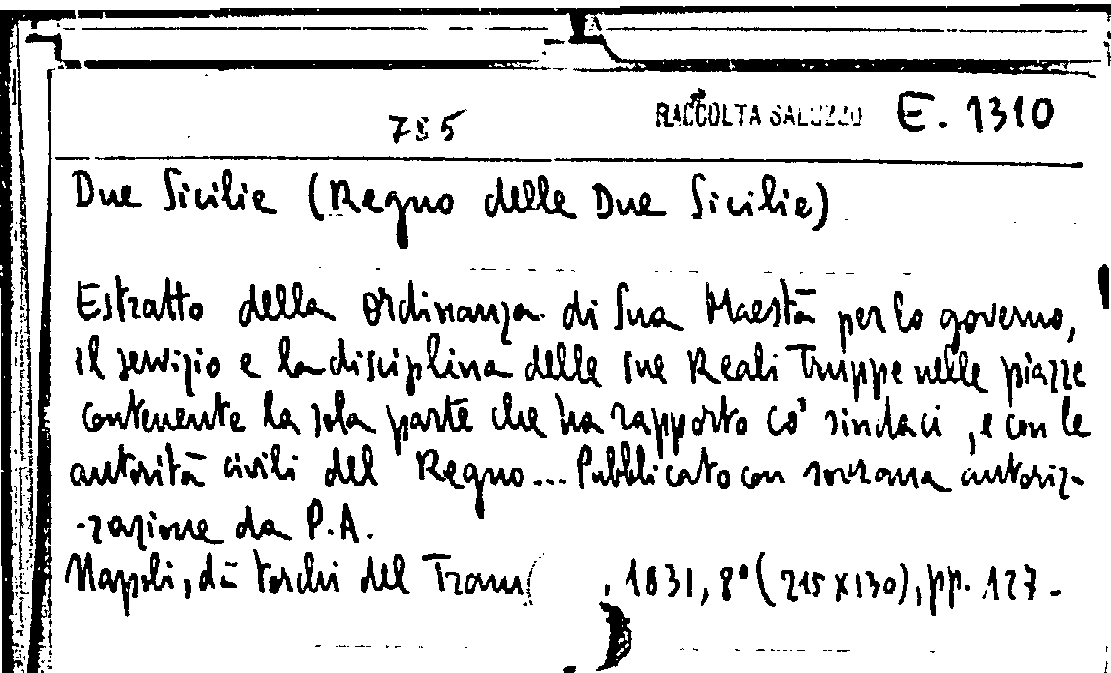 785 RACCOLTA SALUZZO E. 1310
Due Sicilie (Regno delle Due Sicilie)
Estratto della ordinanza di Sua Maestà per lo governo,
il servizio e la disciplina delle sue Reali Truppe nelle piazze
contenente la sola parte che ha rapporto co' sindaci, e con le
autorità civili del Regno... Pubblicato con sovrana autoriz-
-zazione da P.A.
Napoli, dà torchi del Tram , 1831, 8° (215 x 130), pp. 127.